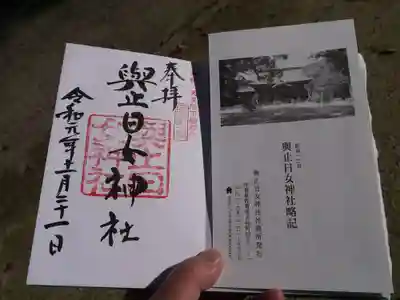 奉拝
與止日女神社
令和元年十一月二十一日
與止日女神社略記
與止日女神社社務所発行